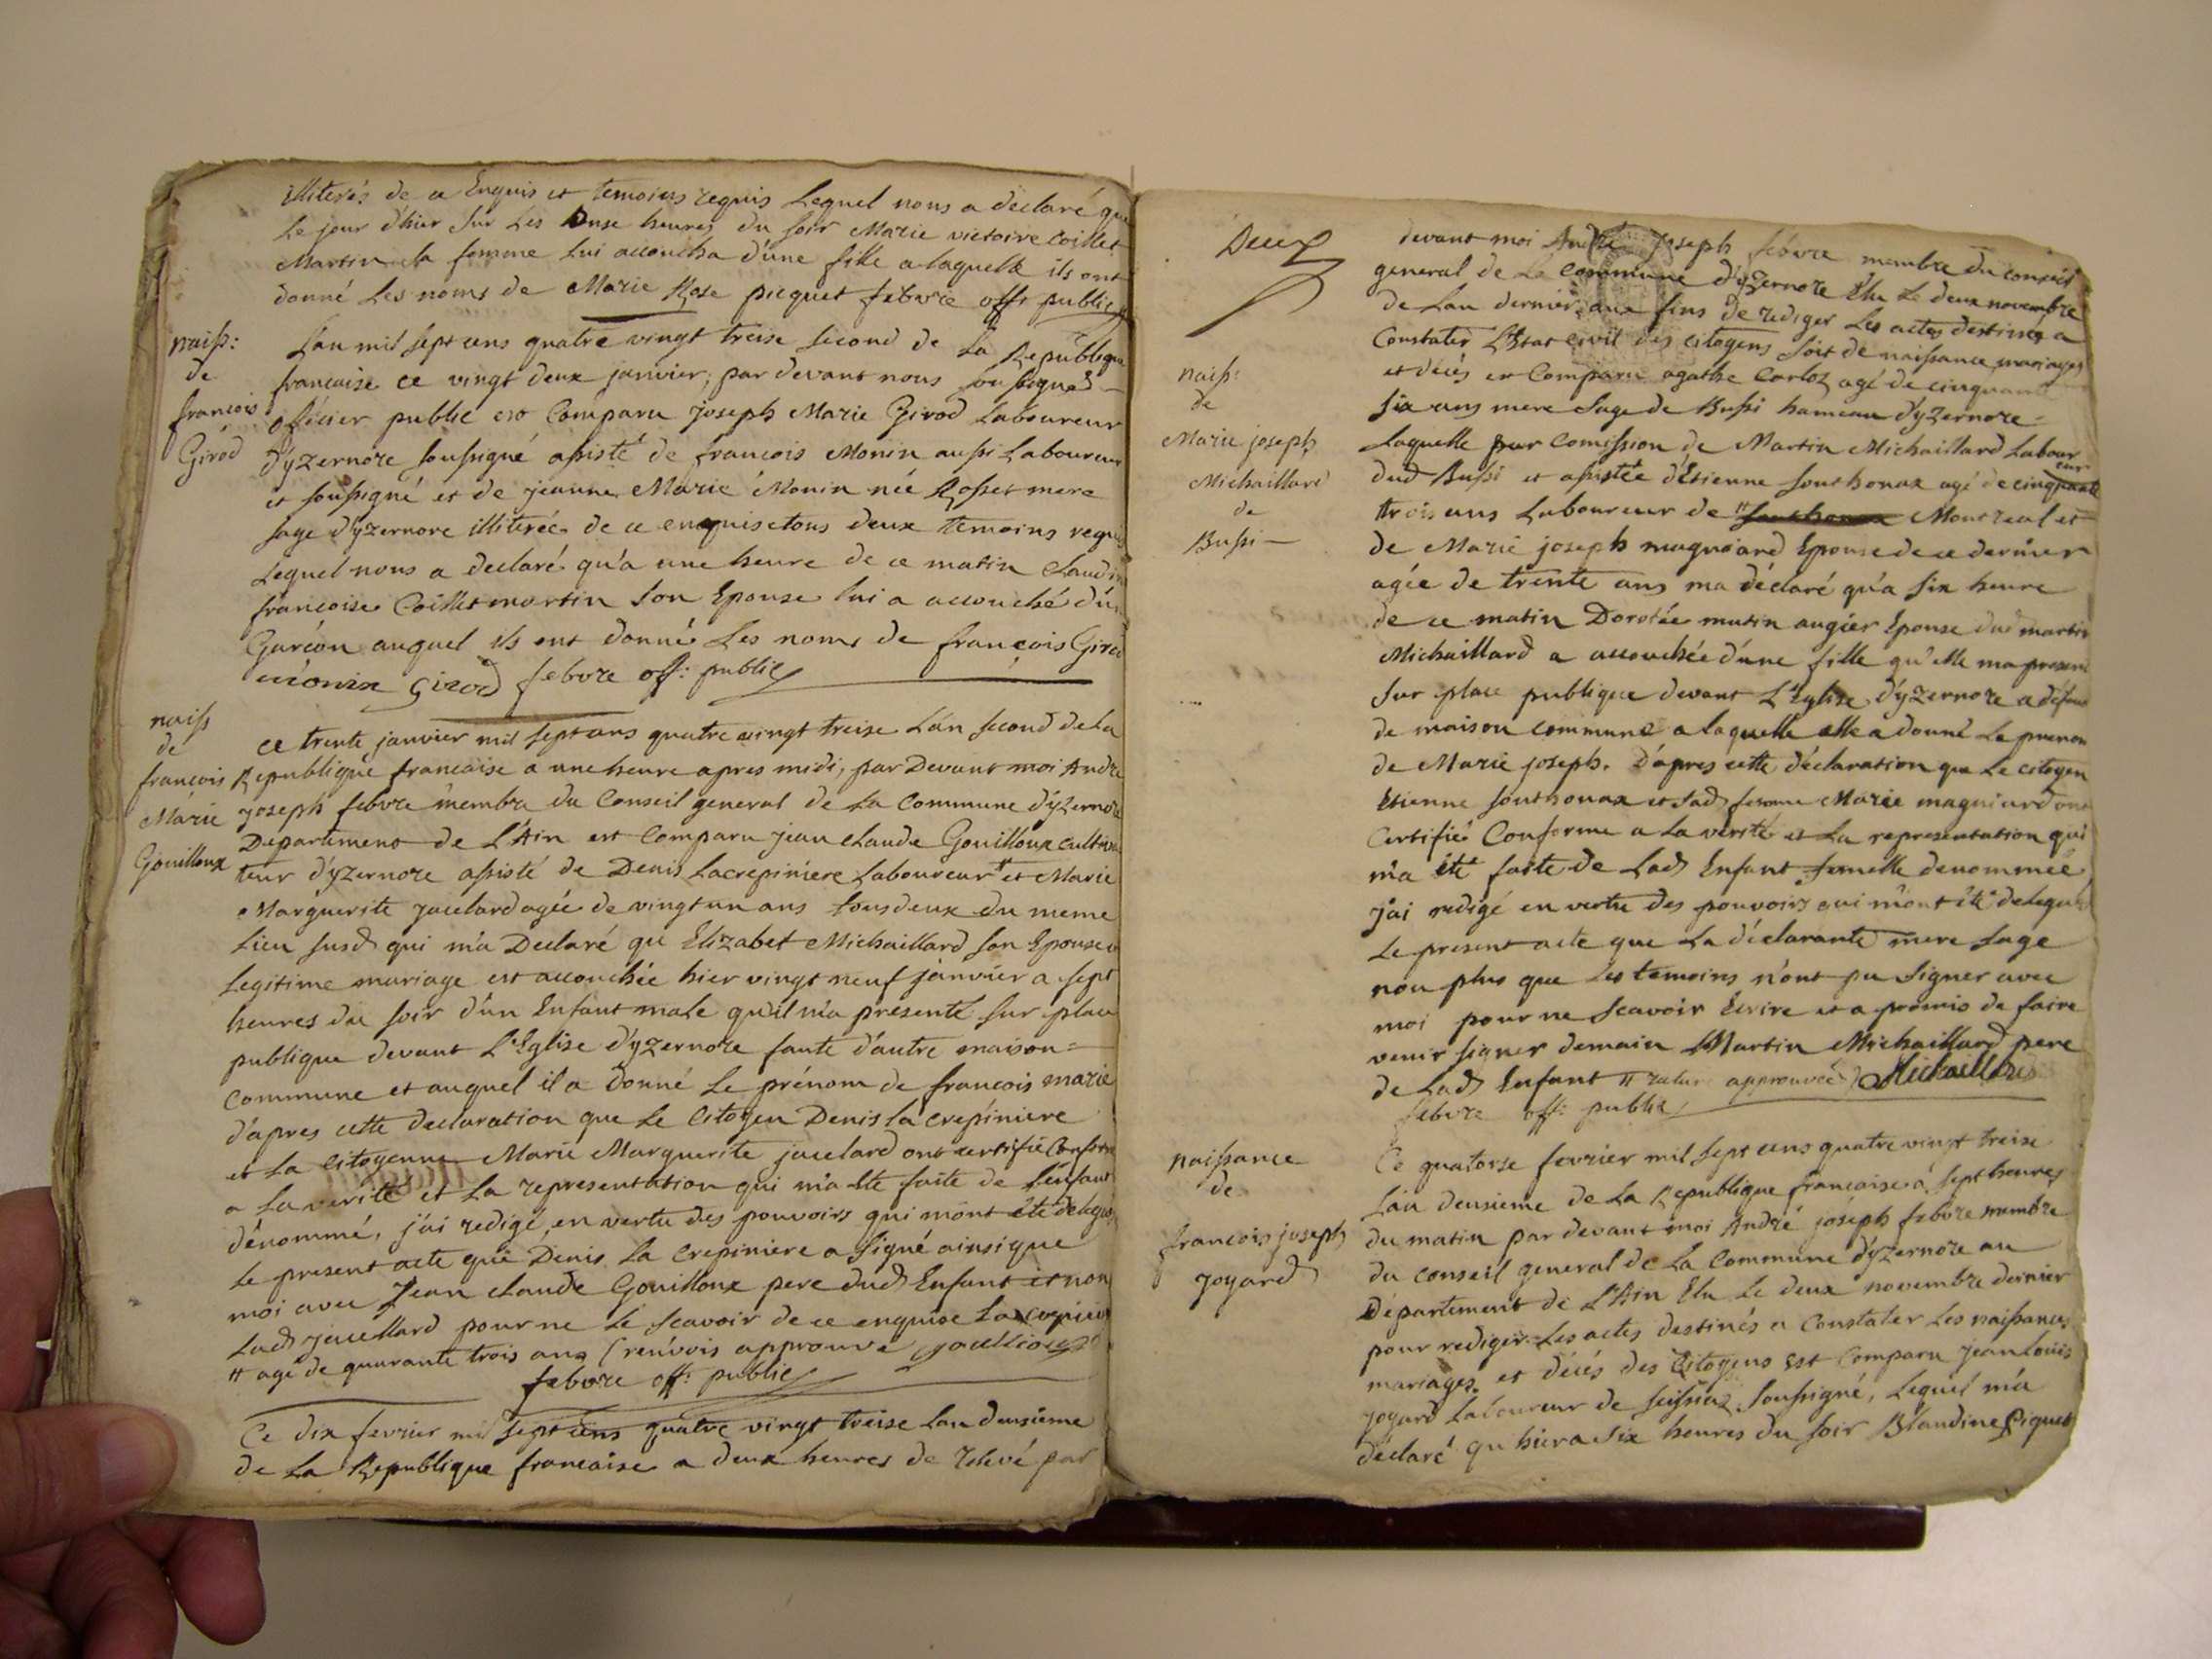 illiterés de ce Enquis et temoins requis Lequel nous a declaré que
Le jour d'hier Sur Les Onse heures du soir Marie victoire Coillet
Martin sa femme lui accoucha d'une fille a laquelle ils ont
donné Les noms de Marie Rose picquet febvre off: public
naiss:
de
francois
Girod
L'an mil sept cens quatre vingt treise second de La Republique
francaise ce vingt deux janvier, par devant nous soussigné
officier public est Comparu joseph Marie Girod Laboureur
d'yzernore soussigné assisté de francois Monin aussi Laboureur
et soussigné et de jeanne Marie Monin née Rosset mere
sage d'yzernore illiterée de ce enquise tous deux temoins requis
Lequel nous a declaré qu'a une heure de ce matin
francoise Coillet martin son Epouse lui a accouché d'un
Garcon auquel ils ont donné Les noms de francois Girod
monin Girod febvre off: public
naiss
de
francois
Marie
Gouilloux
ce trente janvier mil sept cens quatre vingt treise L'an second de La
Republique francaise a une heure apres midi, par Devant moi André
joseph febvre membre du Conseil general de La Commune d'yzernore
Departement de L'Ain est Comparu jean claude Gouilloux cultiva
teur d'yzernore assisté de Denis Lacrepiniere Laboureur # et Marie
Marguerite jacelard agée de vingt un ans tous deux du meme
Lieu susd qui m'a Declaré qu Elizabet Michaillard son Epouse
Legitime mariage est accouchée hier vingt neuf janvier a sept
heures du soir d'un Enfant male qu'il m'a presenté sur place
publique devant L'Eglise d'yzernore faute d'autre maison=
Commune et auquel il a donné Le prénom de francois marie
d'apres cette declaration que Le Citoyen Denis la crepiniere
et La Citoyenne Marie Marguerite jacelard ont certifié Conforme
a La verité et La representation qui m'a été faite de L'enfant
dénommé, j'ai redigé, en vertu des pouvoirs qui m'ont été delegués
Le present acte que Denis La Crepiniere a signé ainsi que
moi avec Jean claude Gouilloux pere dud Enfant et non
Lad jacellard pour ne Le scavoir de ce enquise
# agé de quarante trois ans (renvois approuvé
febvre off: public
Ce dix fevrier mil sept cens quatre vingt treise Lan deusieme
de La Republique francaise a deux heures de relevé par
Deux
devant moi André joseph febvre membre du conseil
general de La Commune d'yzernore Elu Le deux novembre
de Lan dernier aux fins de rediger Les actes destinés a
Constater L'Etat civil des citoyens soit de naissance mariages
et décés est Comparu agathe Carloz agé de cinquante
six ans mere sage de Bussi hameau d'yzernore=
naiss:
de
Marie joseph
Michaillard
de
Bussi
Laquelle par Comission de Martin Michaillard Labour
eur
dud Bussi et assistée d'Etienne Southonax agé de cinquante
trois ans Laboureur de # Southonax Montreal et
de Marie joseph magniard Epouse de ce dernier
agée de trente ans ma déclaré qu'a six heure
de ce matin Dorotée mutin augier Epouse dud martin
Michaillard a accouchée d'une fille qu'elle ma presenté
sur place publique devant L'Eglise d'yzernore a defaut
de maison commune a laquelle elle a donné Le prenom
de Marie joseph. D'apres cette déclaration que Le citoyen
Etienne southonax et sad femme Marie magniard ont
Certifié Conforme a La verité et La representation qui
m'a été faite de Lad Enfant femelle denommée
j'ai redigé en vertu des pouvoirs qui m'ont été delegués
Le present acte que La déclarante mere sage
non plus que Les temoins n'ont pu signer avec
moi pour ne scavoir Ecrire et a promis de faire
venir signer demain Martin Michaillard pere
de Lad Enfant # rature approuvée Michaillard
febvre off: public
naissance
de
francois joseph
joyard
Ce quatorse fevrier mil sept cens quatre vingt treise
L'an deusieme de La Republique francaise a sept heures
du matin par devant moi André joseph febvre membre
du conseil general de La Commune d'yzernore au
Département de L'Ain Elu Le deux novembre dernier
pour rediger Les actes destinés a Constater Les naissances
mariages et décés des Citoyens est Comparu jean Louis
joyard Laboureur de soussigné, Lequel m'a
declaré qu hier a six heures du soir Blandine Piquet